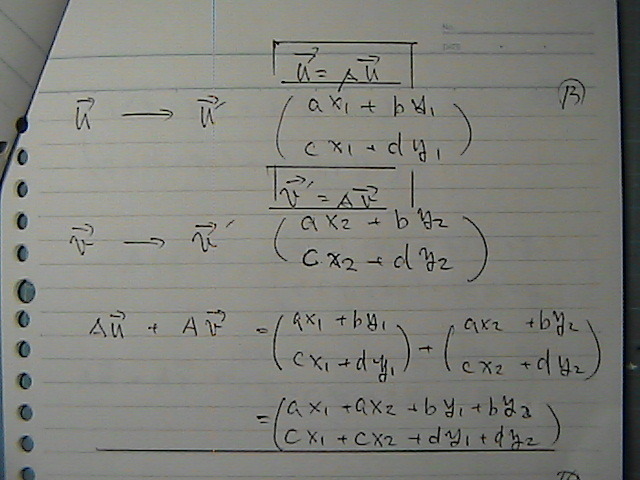 NO.
DATE
u⃗ = Au⃗
u⃗ → u⃗′ (ax₁ + by₁
cx₁ + dy₁)
⑬
v⃗′ = Av⃗
v⃗ → v⃗′ (ax₂ + by₂
cx₂ + dy₂)
Au⃗ + Av⃗ = (ax₁ + by₁ cx₁ + dy₁) + (ax₂ + by₂ cx₂ + dy₂)
= (ax₁ + ax₂ + by₁ + by₂
cx₁ + cx₂ + dy₁ + dy₂)